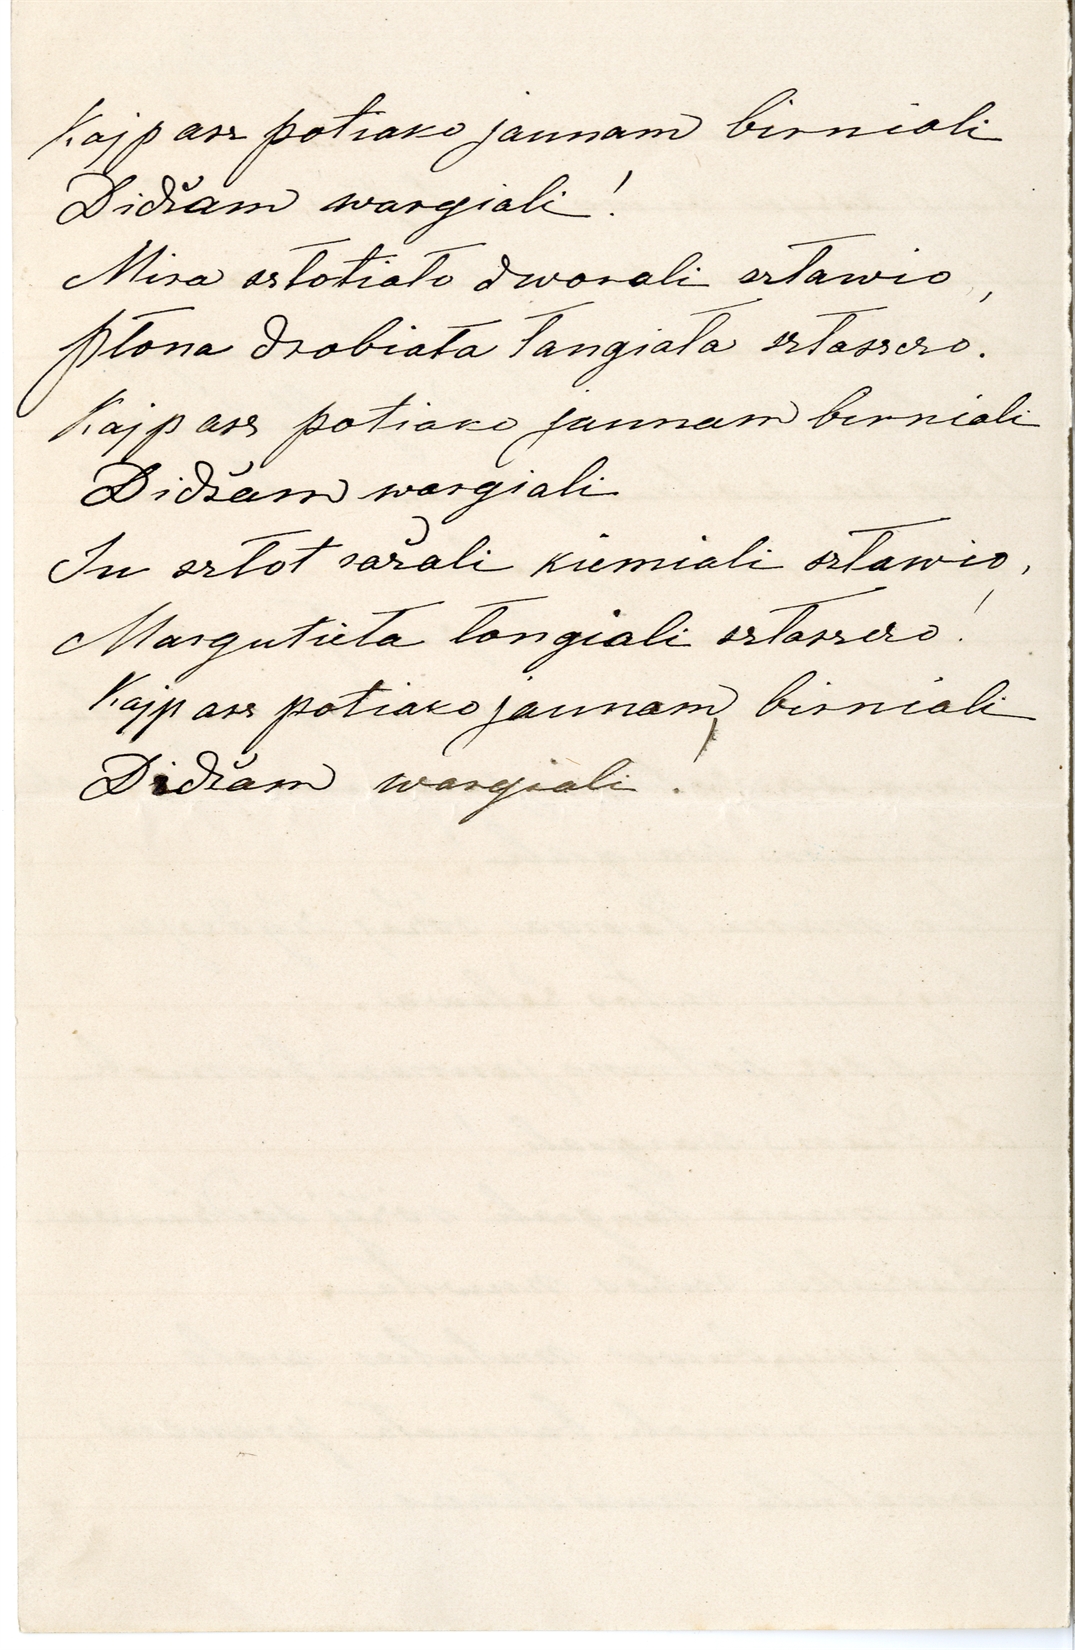 Kajp asz potiako jaunam birniali
Didžam wargiali!
Mira szłotiało dworali szławio,
Płona drobiała łangiała szłaszczo.
Kajp asz potiako jaunam birniali
Didžam wargiali
Ju szłot sažali kiemiali szławio,
Margutieła łongiali szłaszczo!
Kajp asz potiako jaunam birniali
Didžam wargiali!